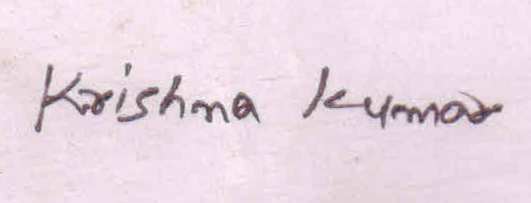 Krishna Kumar